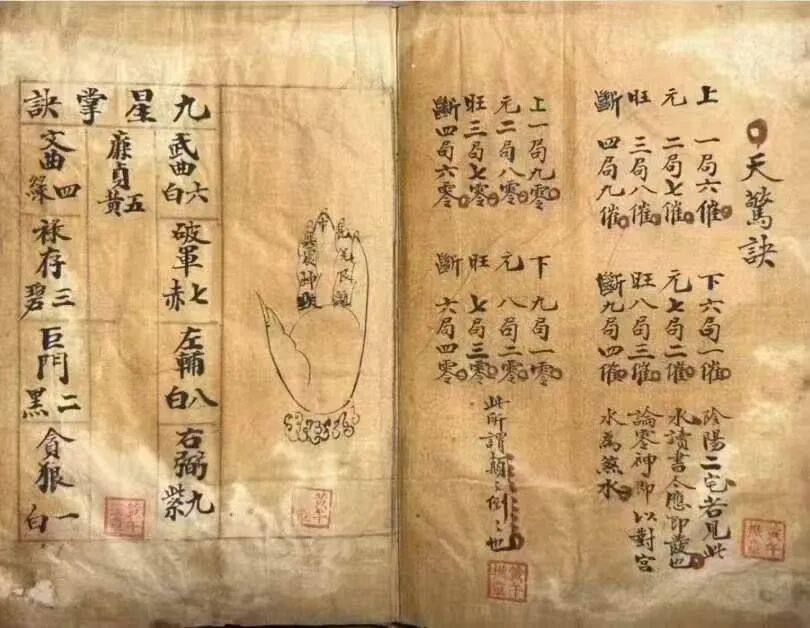 天驚訣
上 一局六催
元 二局七催
旺 三局八催
斷 四局九催
下六局一催
元七局二催
旺八局三催
斷九局四催
陰陽二宅若見此
水讀書應即發也
論零神即以對宮
水為煞水
上一局九零
元二局八零
旺三局七零
斷四局六零
下九局一零
元八局二零
旺七局三零
斷六局四零
此所謂顛々倒々也
九星掌訣
武曲六白
破軍七赤
左輔八白
右弼九紫
廉貞五黃
文曲四綠
祿存三碧
巨門二黑
貪狼一白